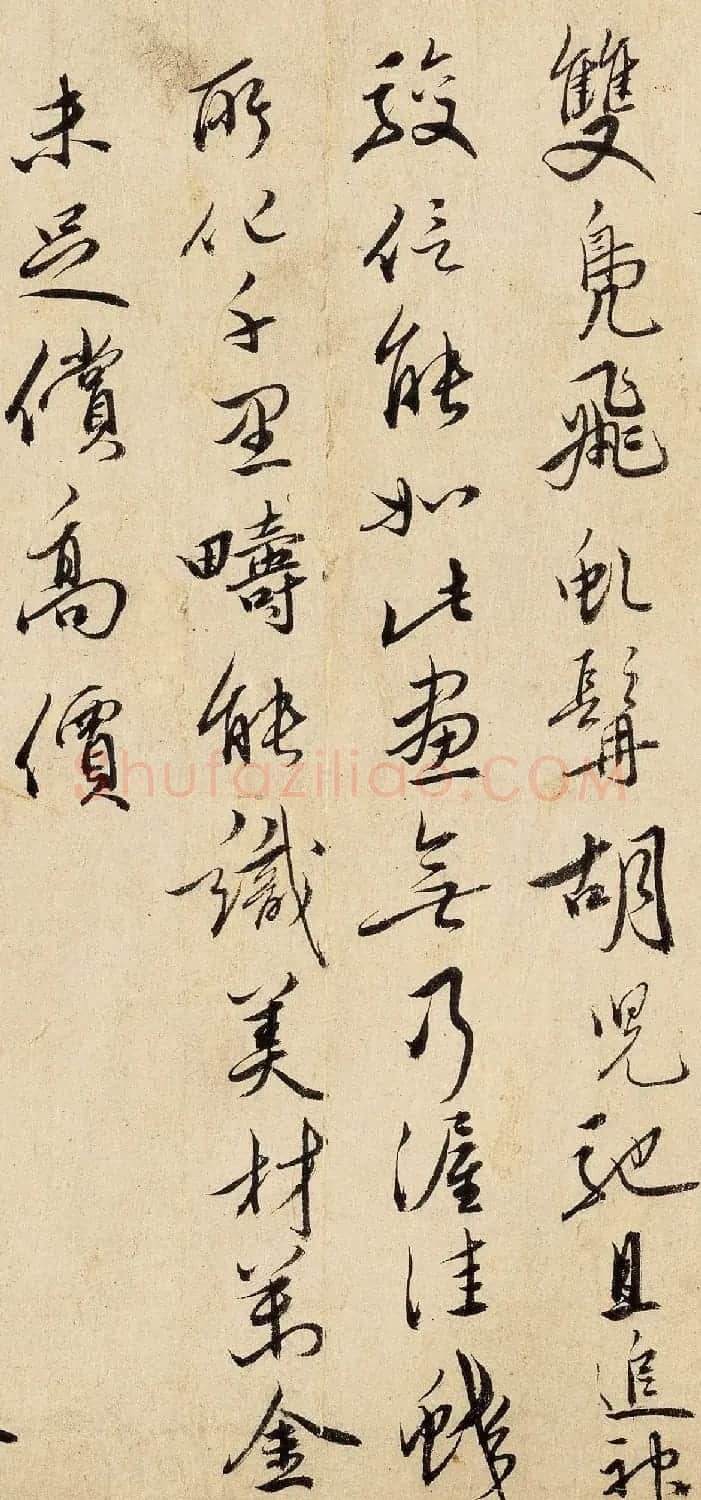 雙鳧飛虬髯胡兒馳且追神
駿信能如此畫無乃渥洼龍
所化千里疇能識美材萬金
未足償高價
Shufaziliao.COM